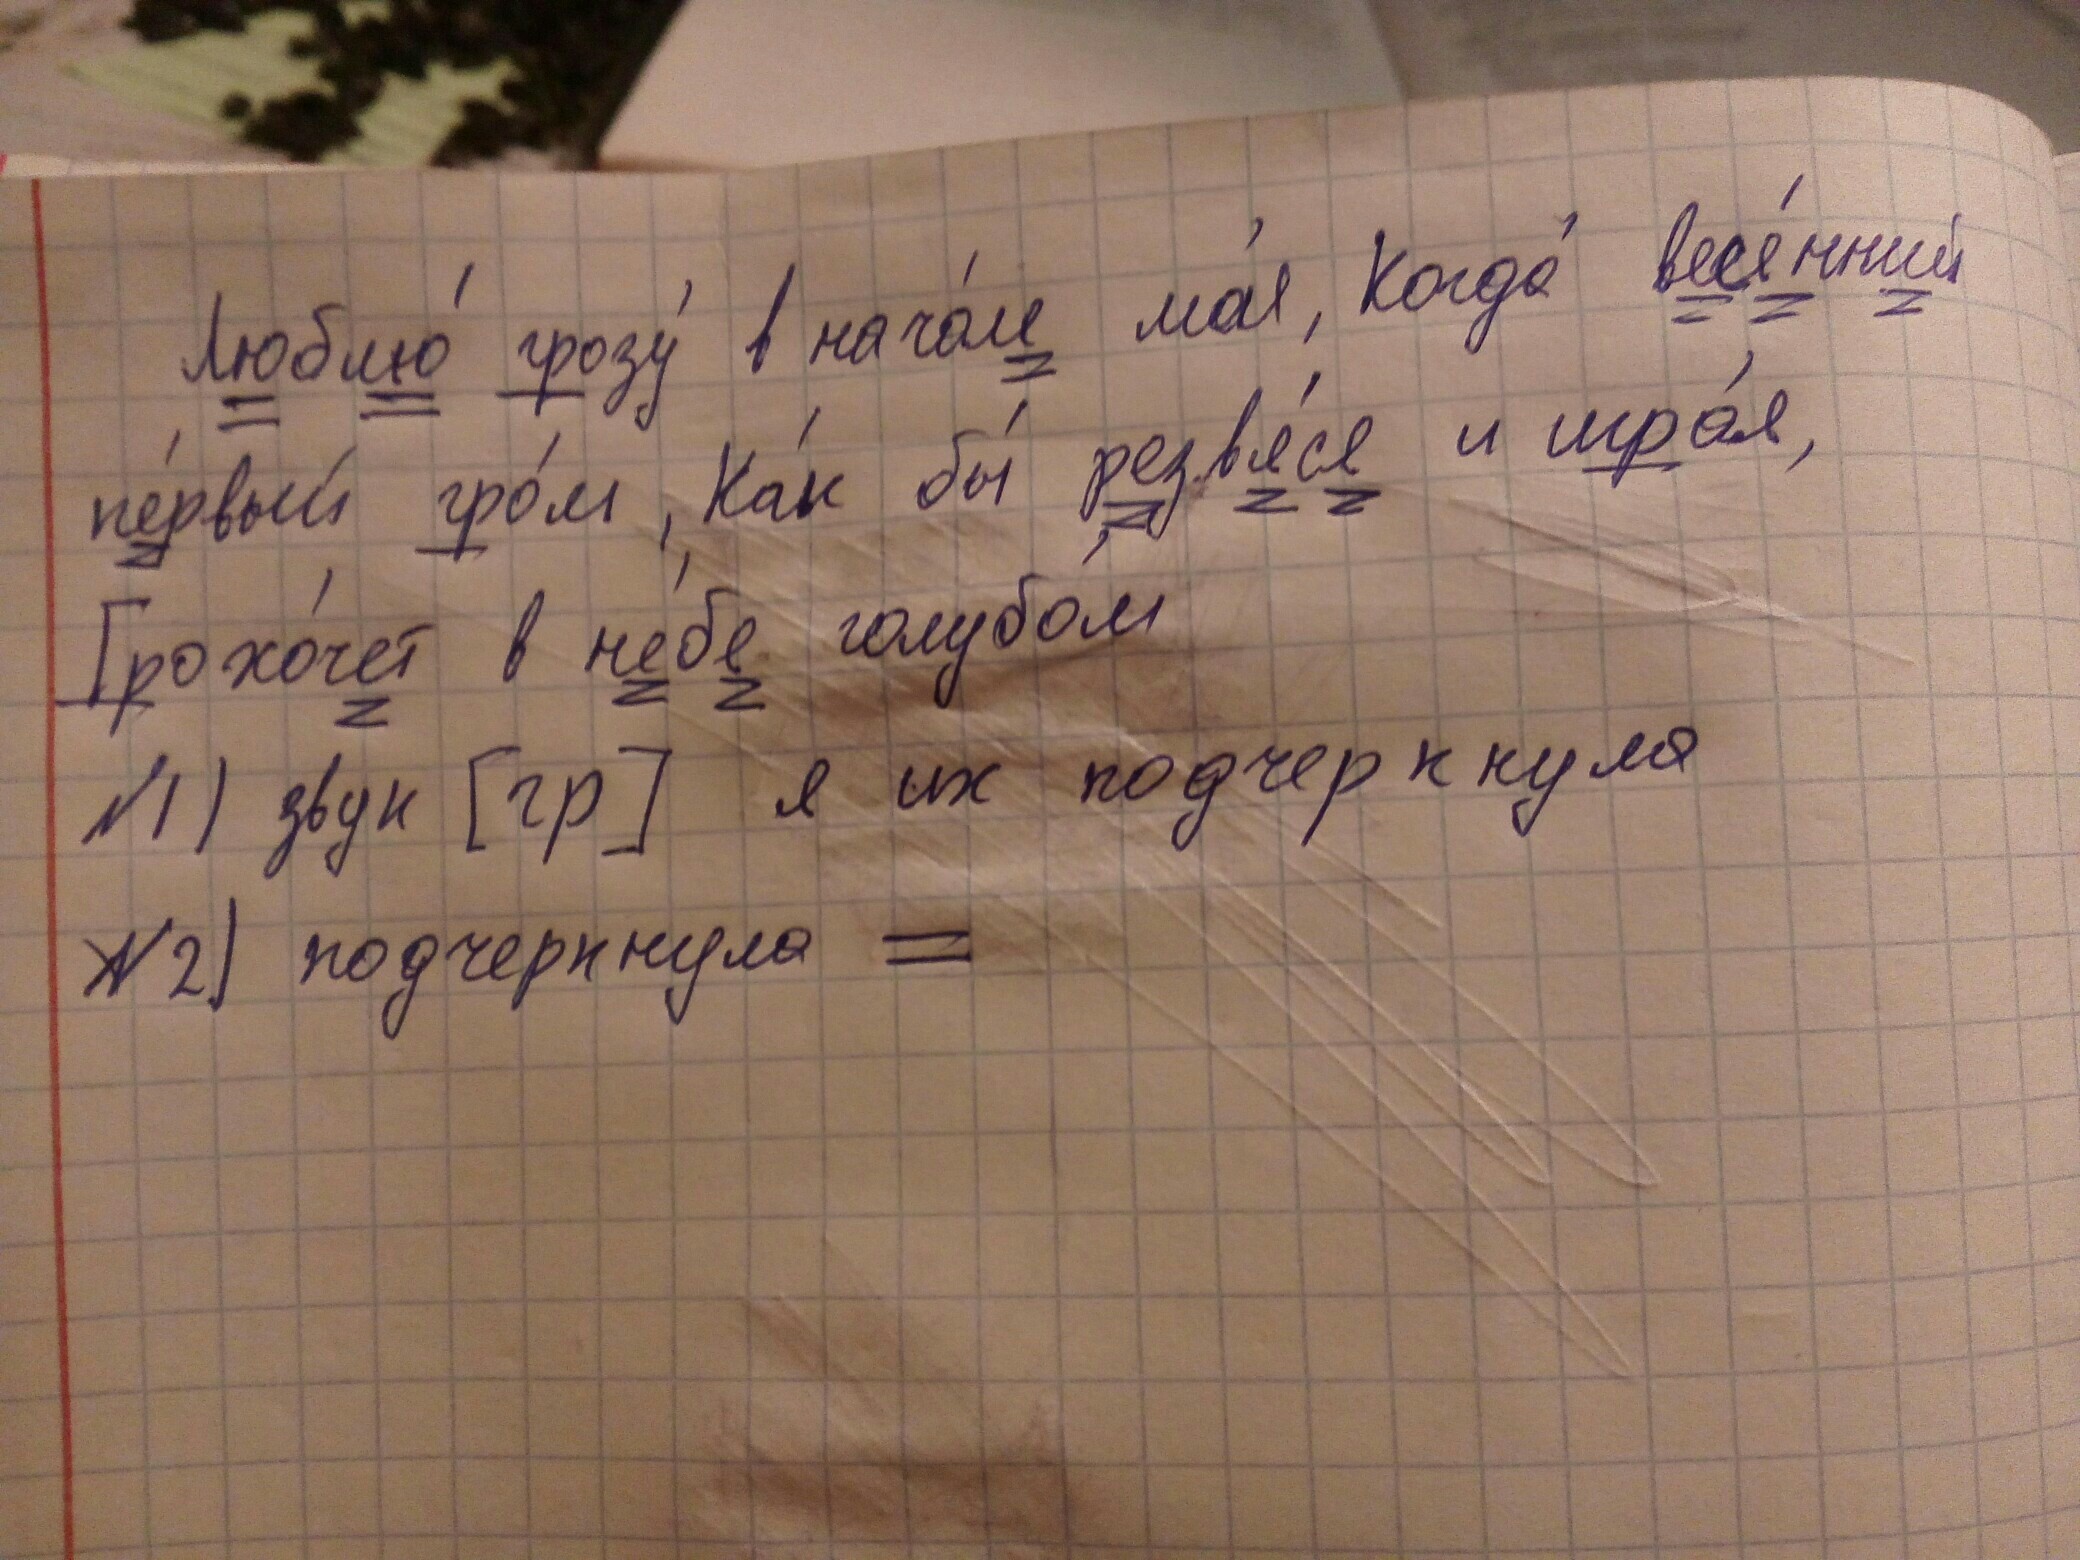 Люблю́ грозу́ в нача́ле ма́я, Когда́ весе́нний
пе́рвый гро́м, Ка́к бы́ резвя́ся и игра́я,
Грохо́чет в не́бе голубо́м
№1) звук [гр] я их подчеркнула
№2) подчеркнула =